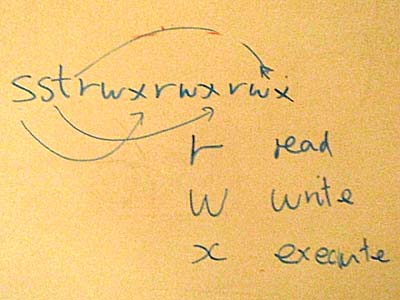 sstrwxrwxrwx
r read
w write
x execute